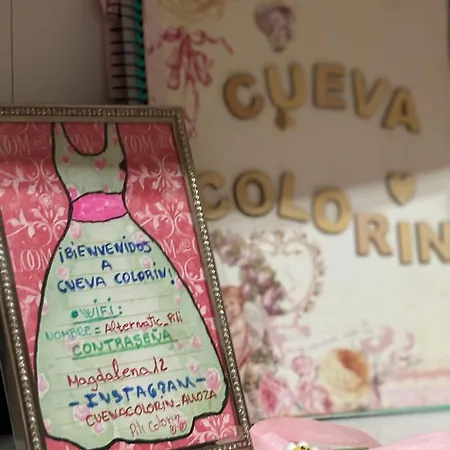 CUEVA
COLORIN
¡BIENVENIDOS
A
CUEVA COLORIN!
WIFI:
NOMBRE = Alternatic_Pili
CONTRASEÑA
Magdalena12
-INSTAGRAM-
CUEVACOLORIN_ALIOZA
Pili Colorin